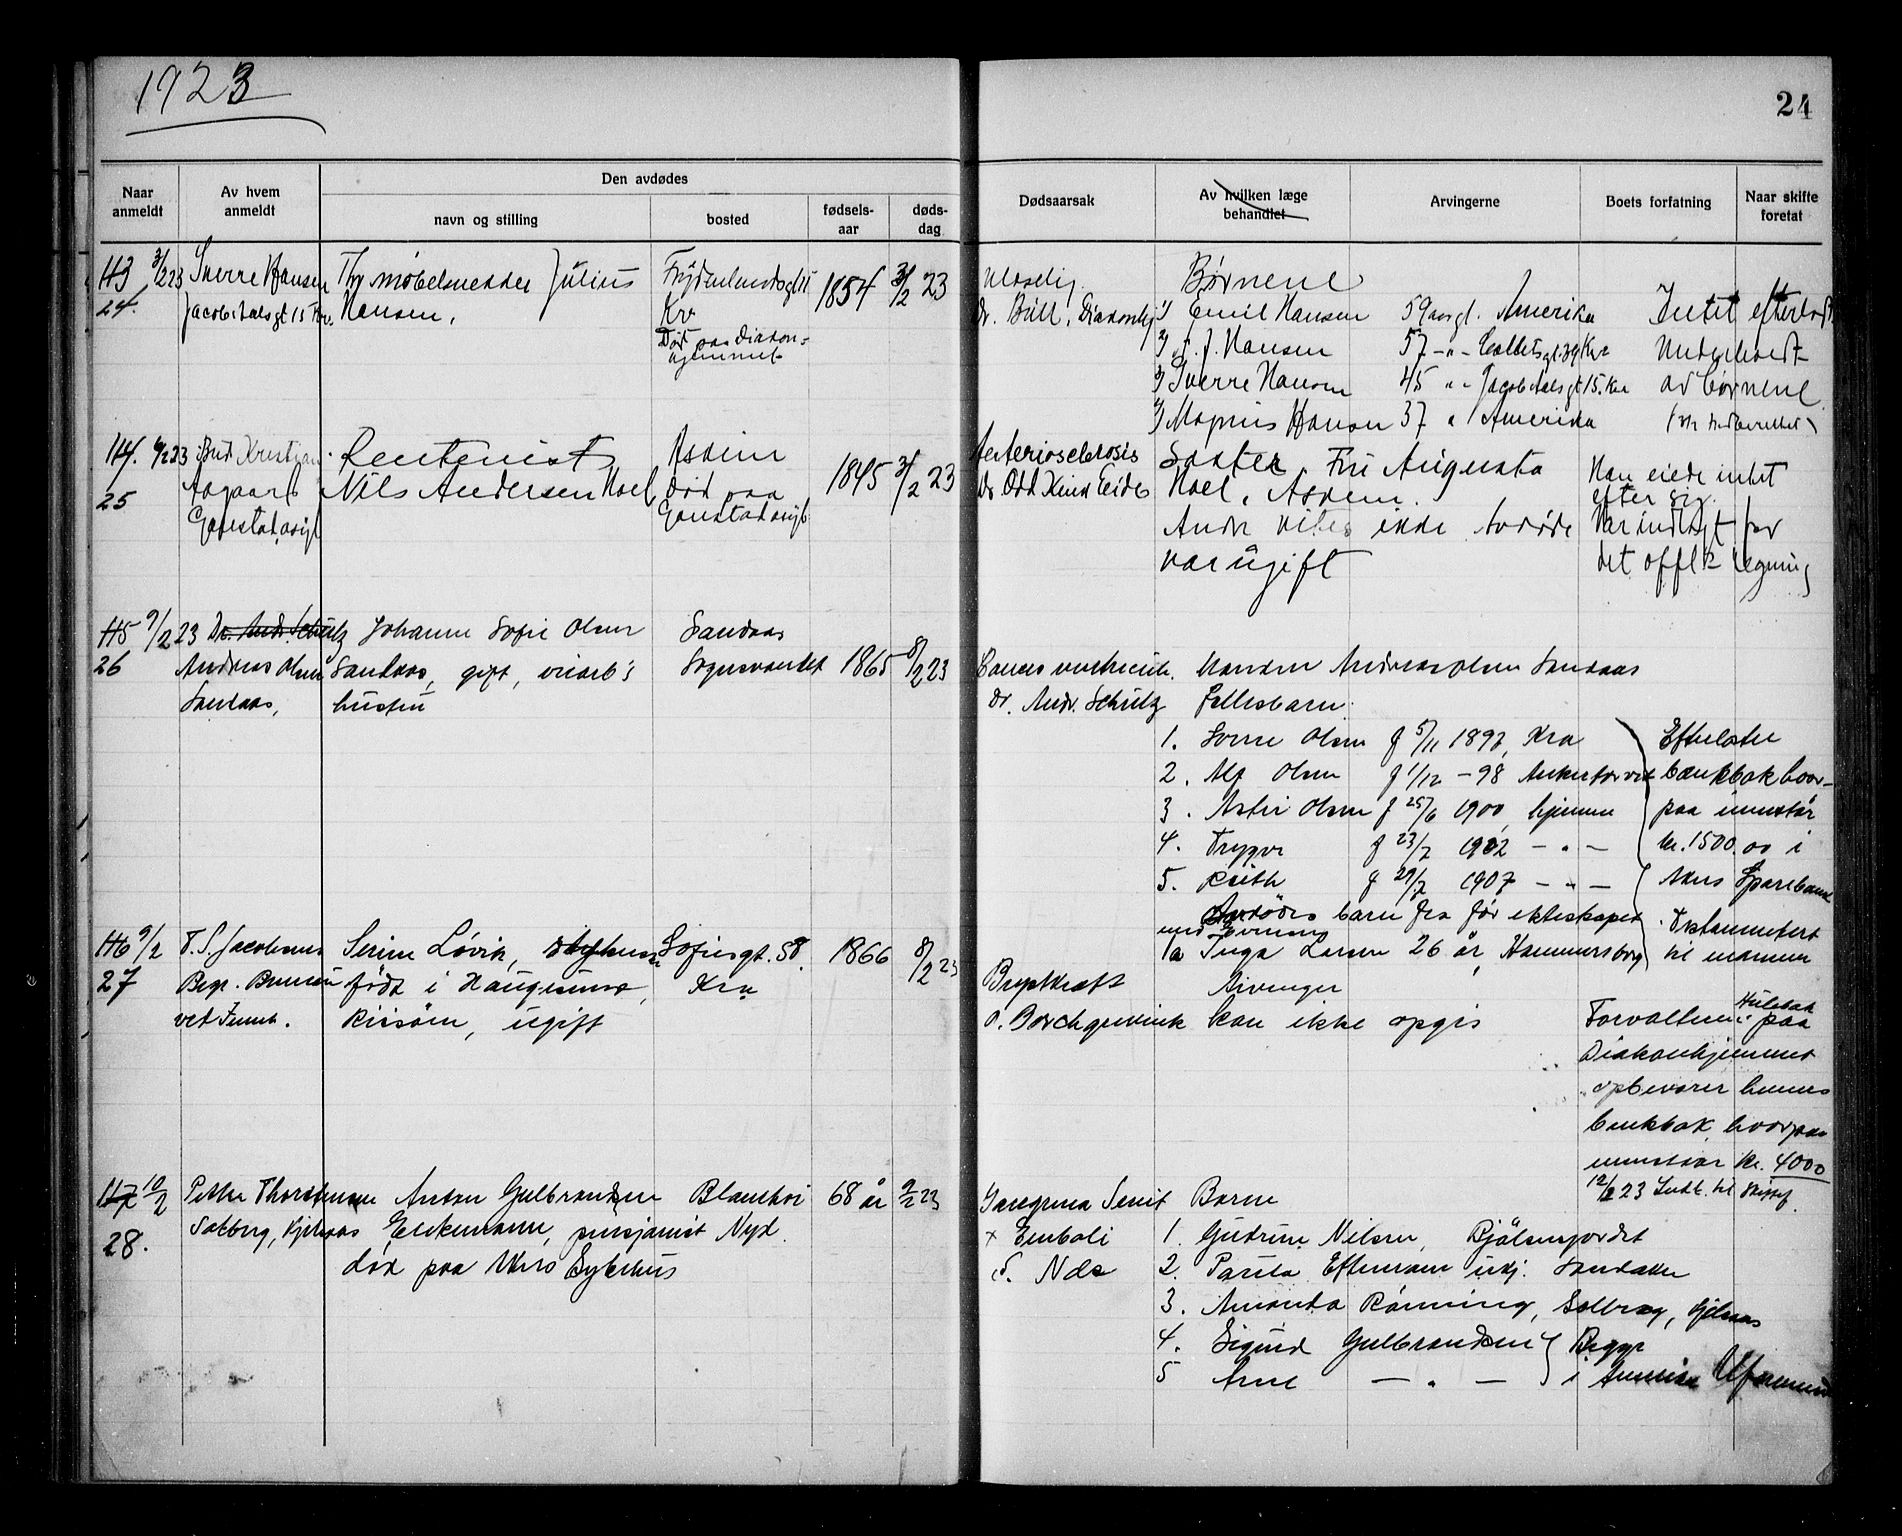 1923
24
Naar anmeldt
Av hvem anmeldt
Den avdødes
navn og stilling
bosted
fødsels-aar
døds-dag
Dødsaarsak
Av hvilken læge behandlet
Arvingerne
Boets forfatning
Naar skifte foretat
113 3/2 23 Sverre Hansen
24. Jacob Aalsgt 15 Kra.
Julius
Hansen.
Kra
Død paa Diakon=
hjemmet
1854 3/2 23
Dr. Bull, Diakonhj
Børnene
1) Emil Hansen 59 aar gl. Amerika
2) Hansen 57 -"- Colletsgt 39 Kra
3) Sverre Hansen 45 "- Jacob Aalsgt 15. Kra
4) Magnus Hansen 37 " Amerika
Intet efterladt
Underholdt
av børnene
114. 6/2 23 Bud Kristian
25 Aagaard
Gaustad asyl
Rentenist
Nils Andersen Hoel
Askim
død paa
Gaustad asyl
1845 3/2 23
Arteriosclerosis
Dr Odd Kinck Eide
Søster Fru Augusta
Hoel, Askim.
Andr vites ikke Avdøde
var ugift
Han eiede intet
efter sig.
Var indlagt for
det offl regning
115 9/2 23 Dr. Andr. Schultz
26 Andreas Olsen
Sandaas,
Johanne Sofie Olsen
Sandaas, gift,
hustru
Sandaas
Sognsvandet 1865 8/2 23
Cancer ventriculi.
Dr. Andr. Schultz
Manden Andreas Olsen Sandaas
Fellesbarn:
1. Olsen f 5/11 1897, Kra
2. Alf Olsen f 1/12 -98 Ankertorvet
3. Olsen f 25/6 1900, hjemme
4. Trygve f 23/7 1902 - " -
5. Ruth f 29/7 1907 - " -
Avdødes barn fra før ekteskapet
1a Inga Larsen 26 år, Hammersborg
Efterlater
bankbok hvor-
paa innestår
kr. 1500.00 i
Akers Sparebank
Testamentert
til mannen
116 9/2 T. S. Jacobsens
27 Begr. Bureau
Serine Løvik,
født i Haugesund,
ugift
Sofiesgt. 58
Kra
1866 8/2 23
Brystkræft
O. Borchgrevink
Arvinger
kan ikke opgis
Forvalteren paa
Diakonhjemmet
opbevarer hennes
bankbok, hvorpaa
innestaar kr. 4000
12/2 23 Indb. til Skiftef.
117 10/2 Petter Thorstensen
28. Solberg, Kjelsaas
Anton Gulbrandsen
Enkemann, pensjonist
død paa Akers Sykehus
Nyd.
68 år 9/2 23
Gangrena Senil
+ Emboli
Barn
1. Gudrun Nilsen, Bjølsenjordet
2. Paula Sandaker
3. Amanda Rønning, Solberg, Kjelsaas
4. Sigurd Gulbrandsen } Begge
5 Arne - " - } i Amerika